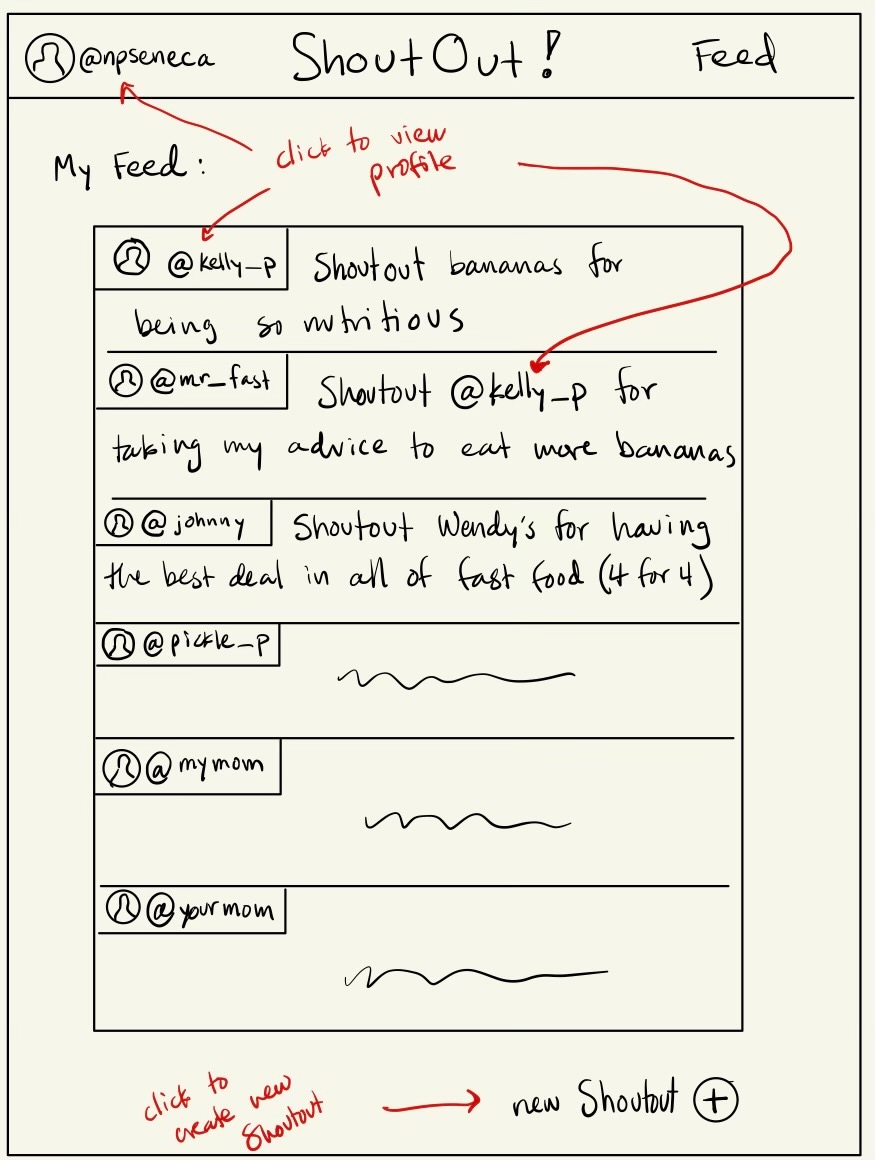 @npseneca ShoutOut! Feed
click to view
profile
My Feed:
@kelly_p Shoutout bananas for
being so nutritious
@mr_fast Shoutout @kelly_p for
taking my advice to eat more bananas
@johnny Shoutout Wendy's for having
the best deal in all of fast food (4 for 4)
@pickle_p
@mymom
@yourmom
click to
create new
Shoutout
new Shoutout +